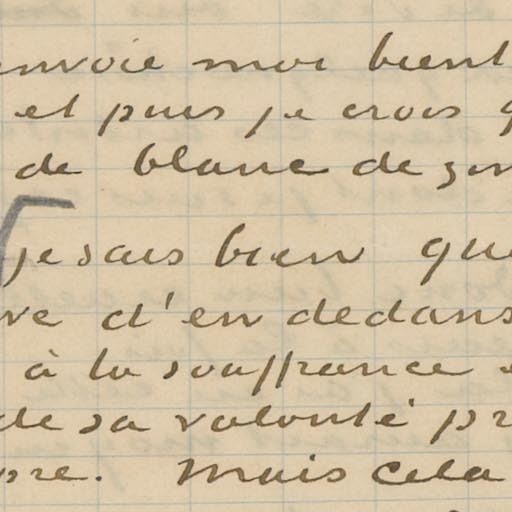 envoie moi bient
et puis je crois q
de blanc de zin
je sais bien que
ve d'en dedans
à la souffrance
de sa volonté pr
pre. Mais cela